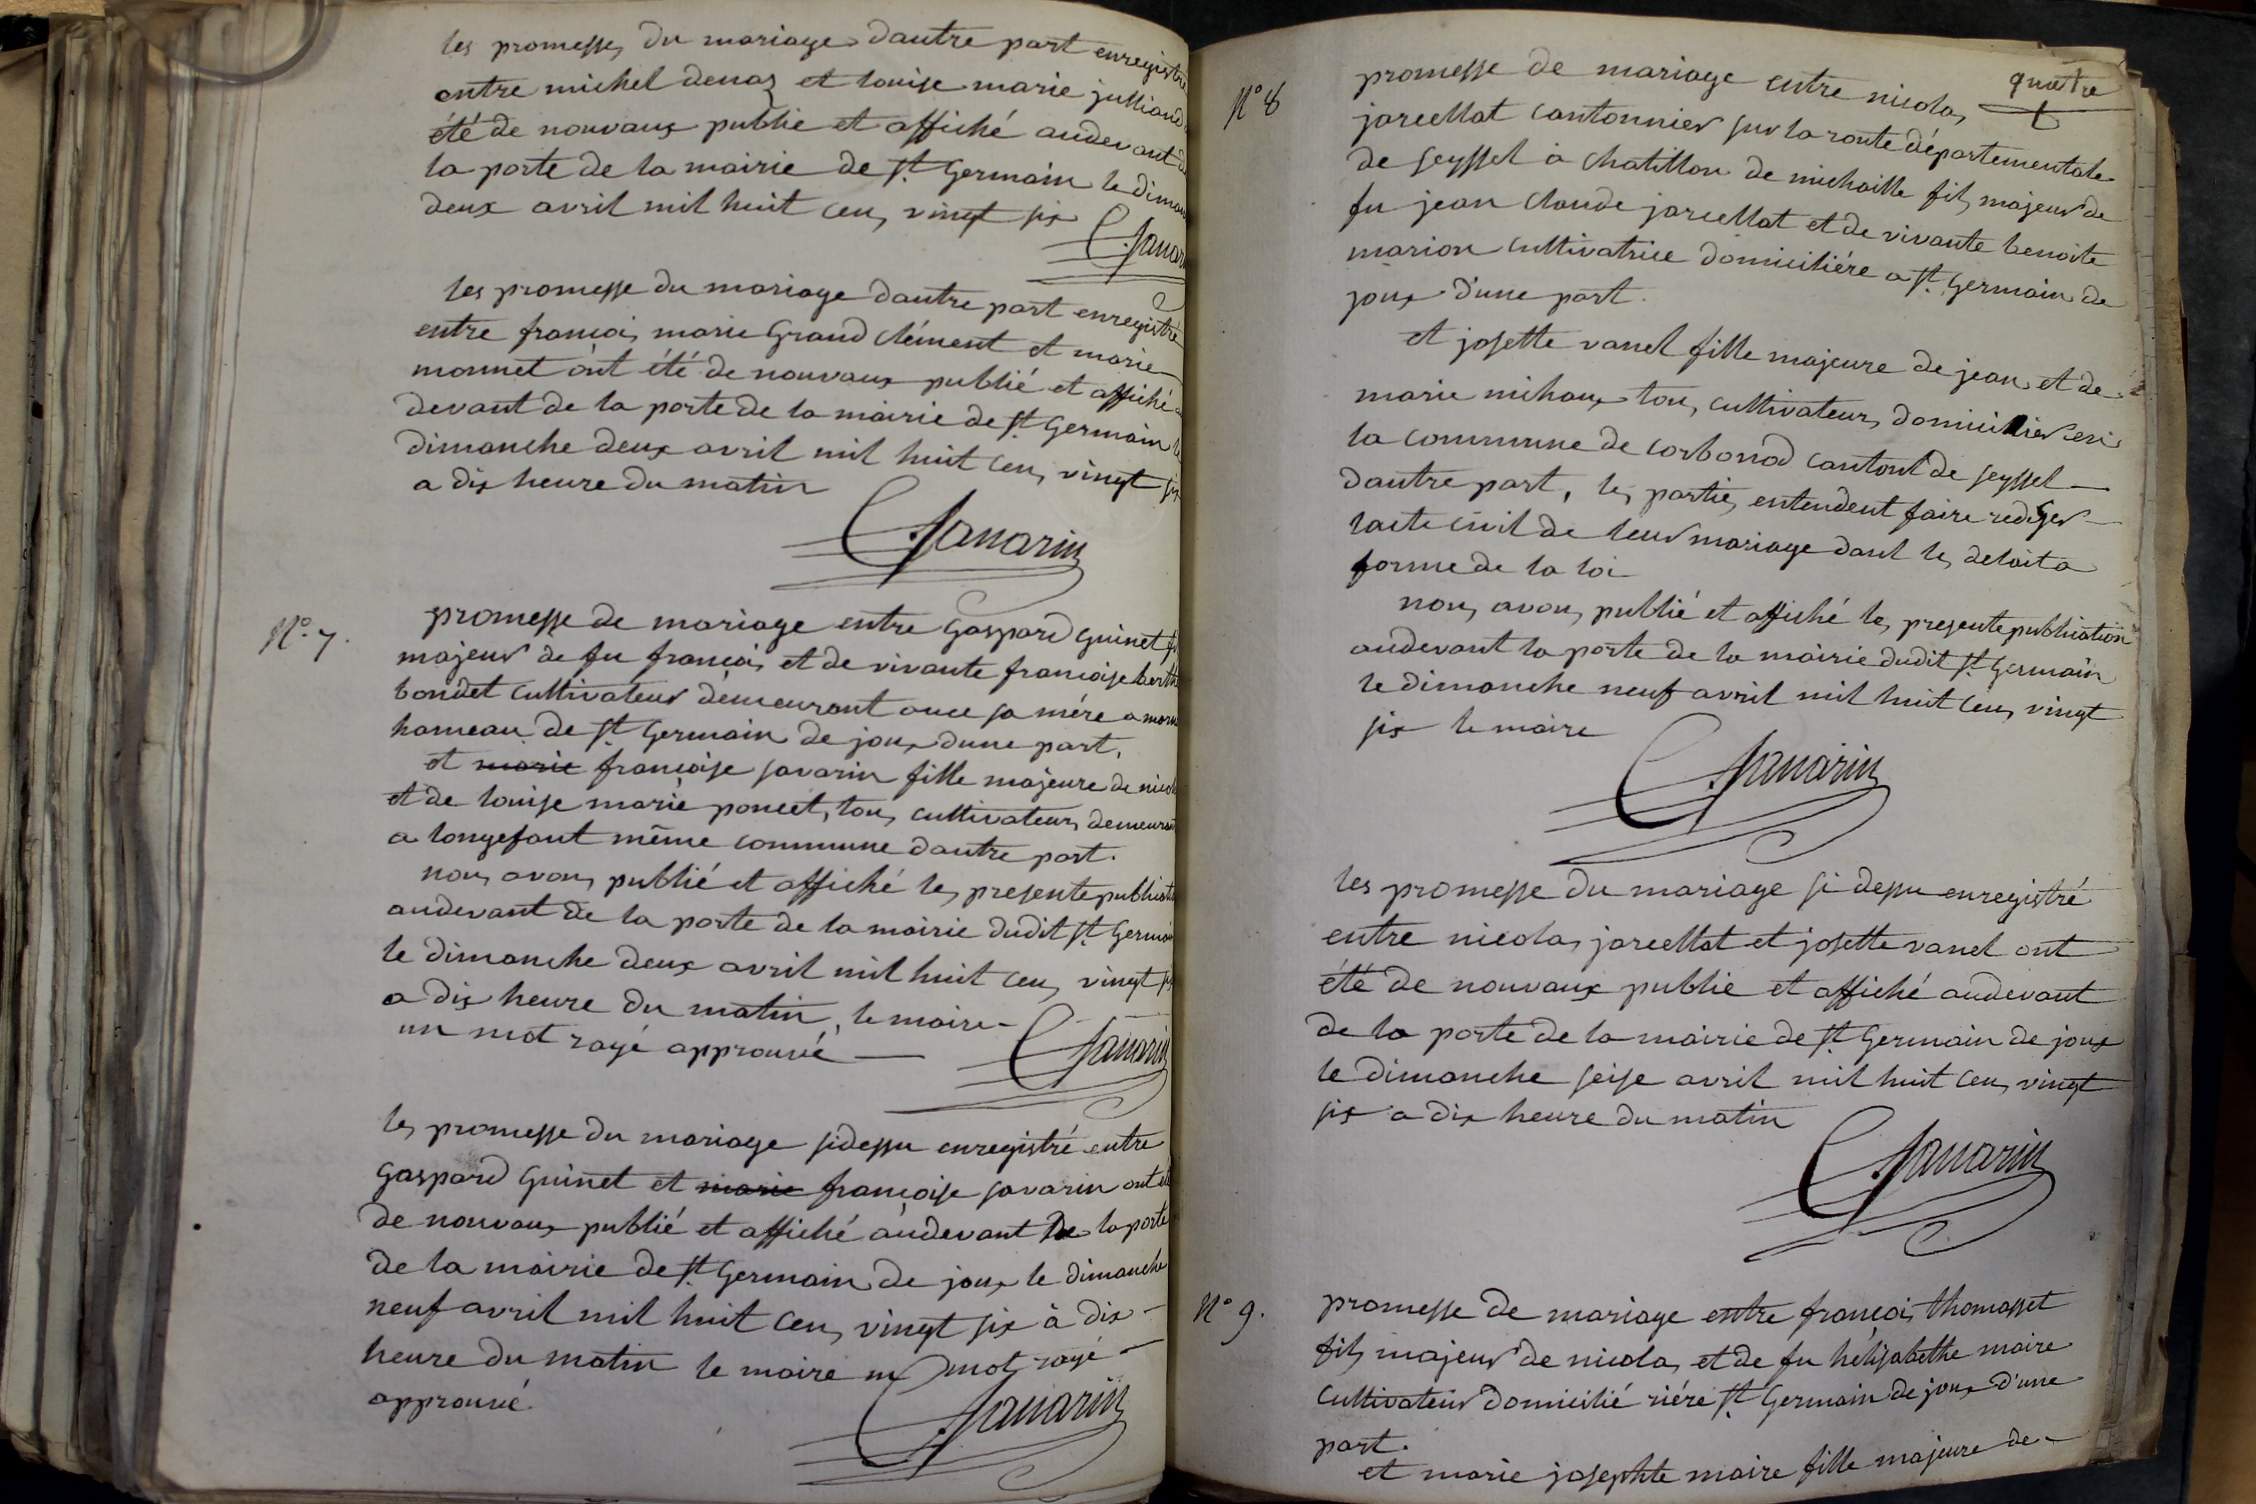 les promesse du mariage dautre part enregistré
entre michel denaz et louise marie julliand
été de nouvaux publié et affiché audevant
la porte de la mairie de St. Germain le diman
deux avril mil huit cens vingt six
Savarin
les promesse du mariage dautre part enregistré
entre françois marie Grand clément et marie
monnet ont été de nouvaux publié et affiché
devant de la porte de la mairie de St. Germain le
dimanche deux avril mil huit cens vingt six
a dix heure du matin
Savarin
N° 7.
promesse de mariage entre Gaspard Guinet fi
majeur de fu françois et de vivante françoise berth
bondet cultivateur démeurant avec sa mére a morn
hameau de St. Germain de joux dune part,
et marie françoise savarin fille majeure de nicol
et de louise marie poncet, tous cultivateurs demeurant
a longefant même commune dautre part.
nous avons publié et affiché les presente publicati
audevant de la porte de la mairie dudit St. Germain
le dimanche deux avril mil huit cens vingt six
a dix heure du matin, le maire
un mot rayé approuvé
Savarin
les promesse du mariage sidessu enregistré entre
Gaspard Guinet et marie françoise savarin ont été
de nouvaux publié et affiché audevant de la porte
de la mairie de St. Germain de joux le dimanche
neuf avril mil huit cens vingt six à dix
heure du matin le maire un mot rayé
approuvé.
Savarin
quatre
N° 8
promesse de mariage entre nicolas
jarcellat cantonnier sur la route départementale
de seyssel a chatillon de michaille fils majeur de
fu jean claude jarcellat et de vivante benoite
marion cultivatrice domiciliére a St. Germain de
joux d'une part.
et josette vanel fille majeure de jean et de
marie mihoux tous cultivateurs domicilier en
la commune de corbonod cantont de seyssel
dautre part, les parties entendent faire rediger
lacte civil de leur mariage dant les delait a
forme de la loi
nous avons publié et affiché les presente publication
audevant la porte de la mairie dudit St. Germain
le dimanche neuf avril mil huit cens vingt
six le maire
Savarin
les promesse du mariage si dessu enregistré
entre nicolas jarcellat et josette vanel ont
été de nouvaux publié et affiché audevant
de la porte de la mairie de St. Germain de joux
le dimanche seise avril mil huit cens vingt
six a dix heure du matin
Savarin
N° 9.
promesse de mariage entre françois thomasset
fils majeur de nicolas et de fu hélisabethe maire
cultivateur domicilié riére St. Germain de joux d'une
part.
et marie josephte maire fille majeure de